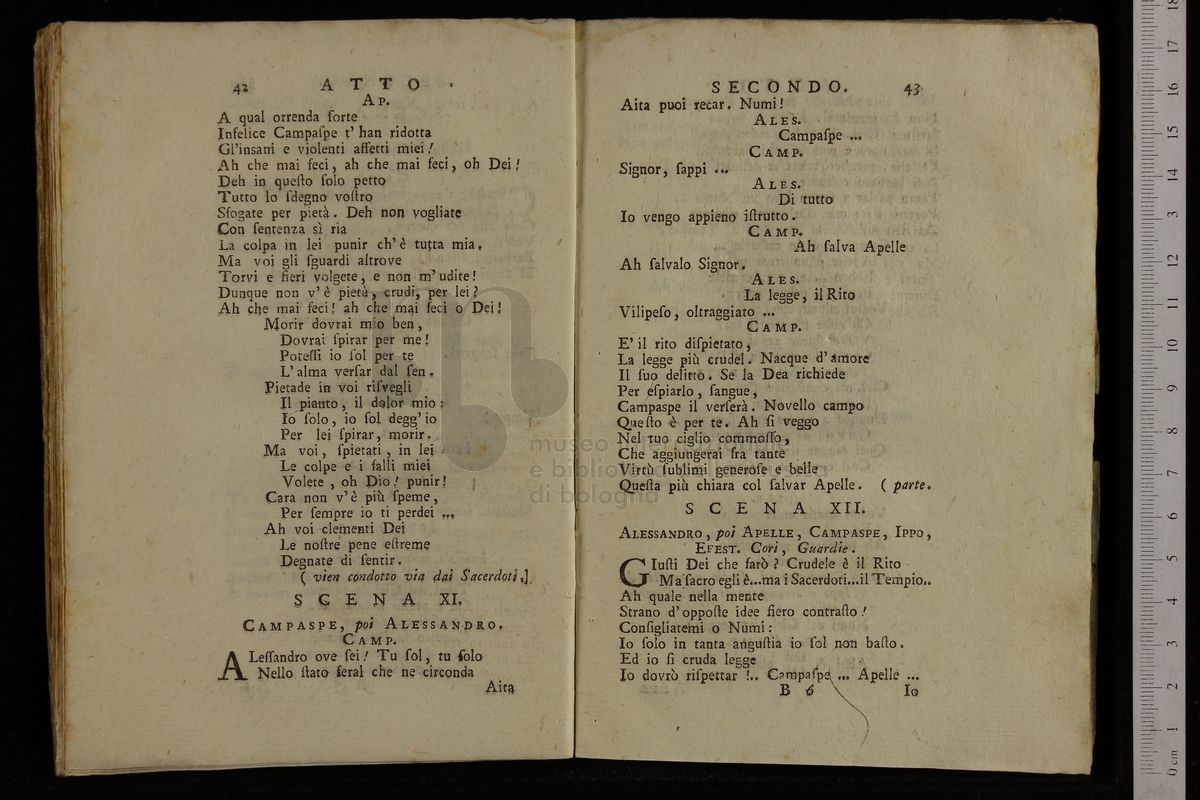 42 ATTO
AP.
A qual orrenda ſorte
Infelice Campaſpe t' han ridotta
Gl'inſani e violenti affetti miei!
Ah che mai feci, ah che mai feci, oh Dei!
Deh in queſto ſolo petto
Tutto lo ſdegno voſtro
Sfogate per pietà. Deh non vogliate
Con ſentenza sì ria
La colpa in lei punir ch'è tutta mia.
Ma voi gli ſguardi altrove
Torvi e fieri volgete, e non m' udite!
Dunque non v' è pietà, crudi, per lei?
Ah che mai feci! ah che mai feci o Dei!
Morir dovrai mio ben,
Dovrai ſpirar per me!
Poteſſi io ſol per te
L' alma verſar dal ſen.
Pietade in voi riſvegli
Il pianto, il dolor mio:
Io ſolo, io ſol degg' io
Per lei ſpirar, morir.
Ma voi, ſpietati, in lei
Le colpe e i falli miei
Volete, oh Dio! punir!
Cara non v' è più ſpeme,
Per ſempre io ti perdei ...
Ah voi clementi Dei
Le noſtre pene eſtreme
Degnate di ſentir.
( vien condotto via dai Sacerdoti.]
SCENA XI.
CAMPASPE, poi ALESSANDRO.
CAMP.
ALeſſandro ove ſei! Tu ſol, tu ſolo
Nello ſtato feral che ne circonda
Aita
SECONDO. 43
Aita puoi recar. Numi!
ALES.
Campaſpe ...
CAMP.
Signor, ſappi ...
ALES.
Di tutto
Io vengo appieno iſtrutto.
CAMP.
Ah ſalva Apelle
Ah ſalvalo Signor.
ALES.
La legge, il Rito
Vilipeſo, oltraggiato ...
CAMP.
E' il rito diſpietato,
La legge più crudel. Nacque d' amore
Il ſuo delitto. Se la Dea richiede
Per eſpiarlo, ſangue,
Campaspe il verſerà. Novello campo
Queſto è per te. Ah ſi veggo
Nel tuo ciglio commoſſo,
Che aggiungerai fra tante
Virtù ſublimi generoſe e belle
Queſta più chiara col ſalvar Apelle. ( parte.
SCENA XII.
ALESSANDRO, poi APELLE, CAMPASPE, IPPO,
EFEST. Cori, Guardie.
GIuſti Dei che farò? Crudele è il Rito
Ma ſacro egli è...ma i Sacerdoti...il Tempio..
Ah quale nella mente
Strano d' oppoſte idee fiero contraſto!
Conſigliatemi o Numi:
Io ſolo in tanta anguſtia io ſol non baſto.
Ed io ſi cruda legge
Io dovrò riſpettar !.. Campaſpe ... Apelle ...
B 6 Io
museo
e biblio
di bologna